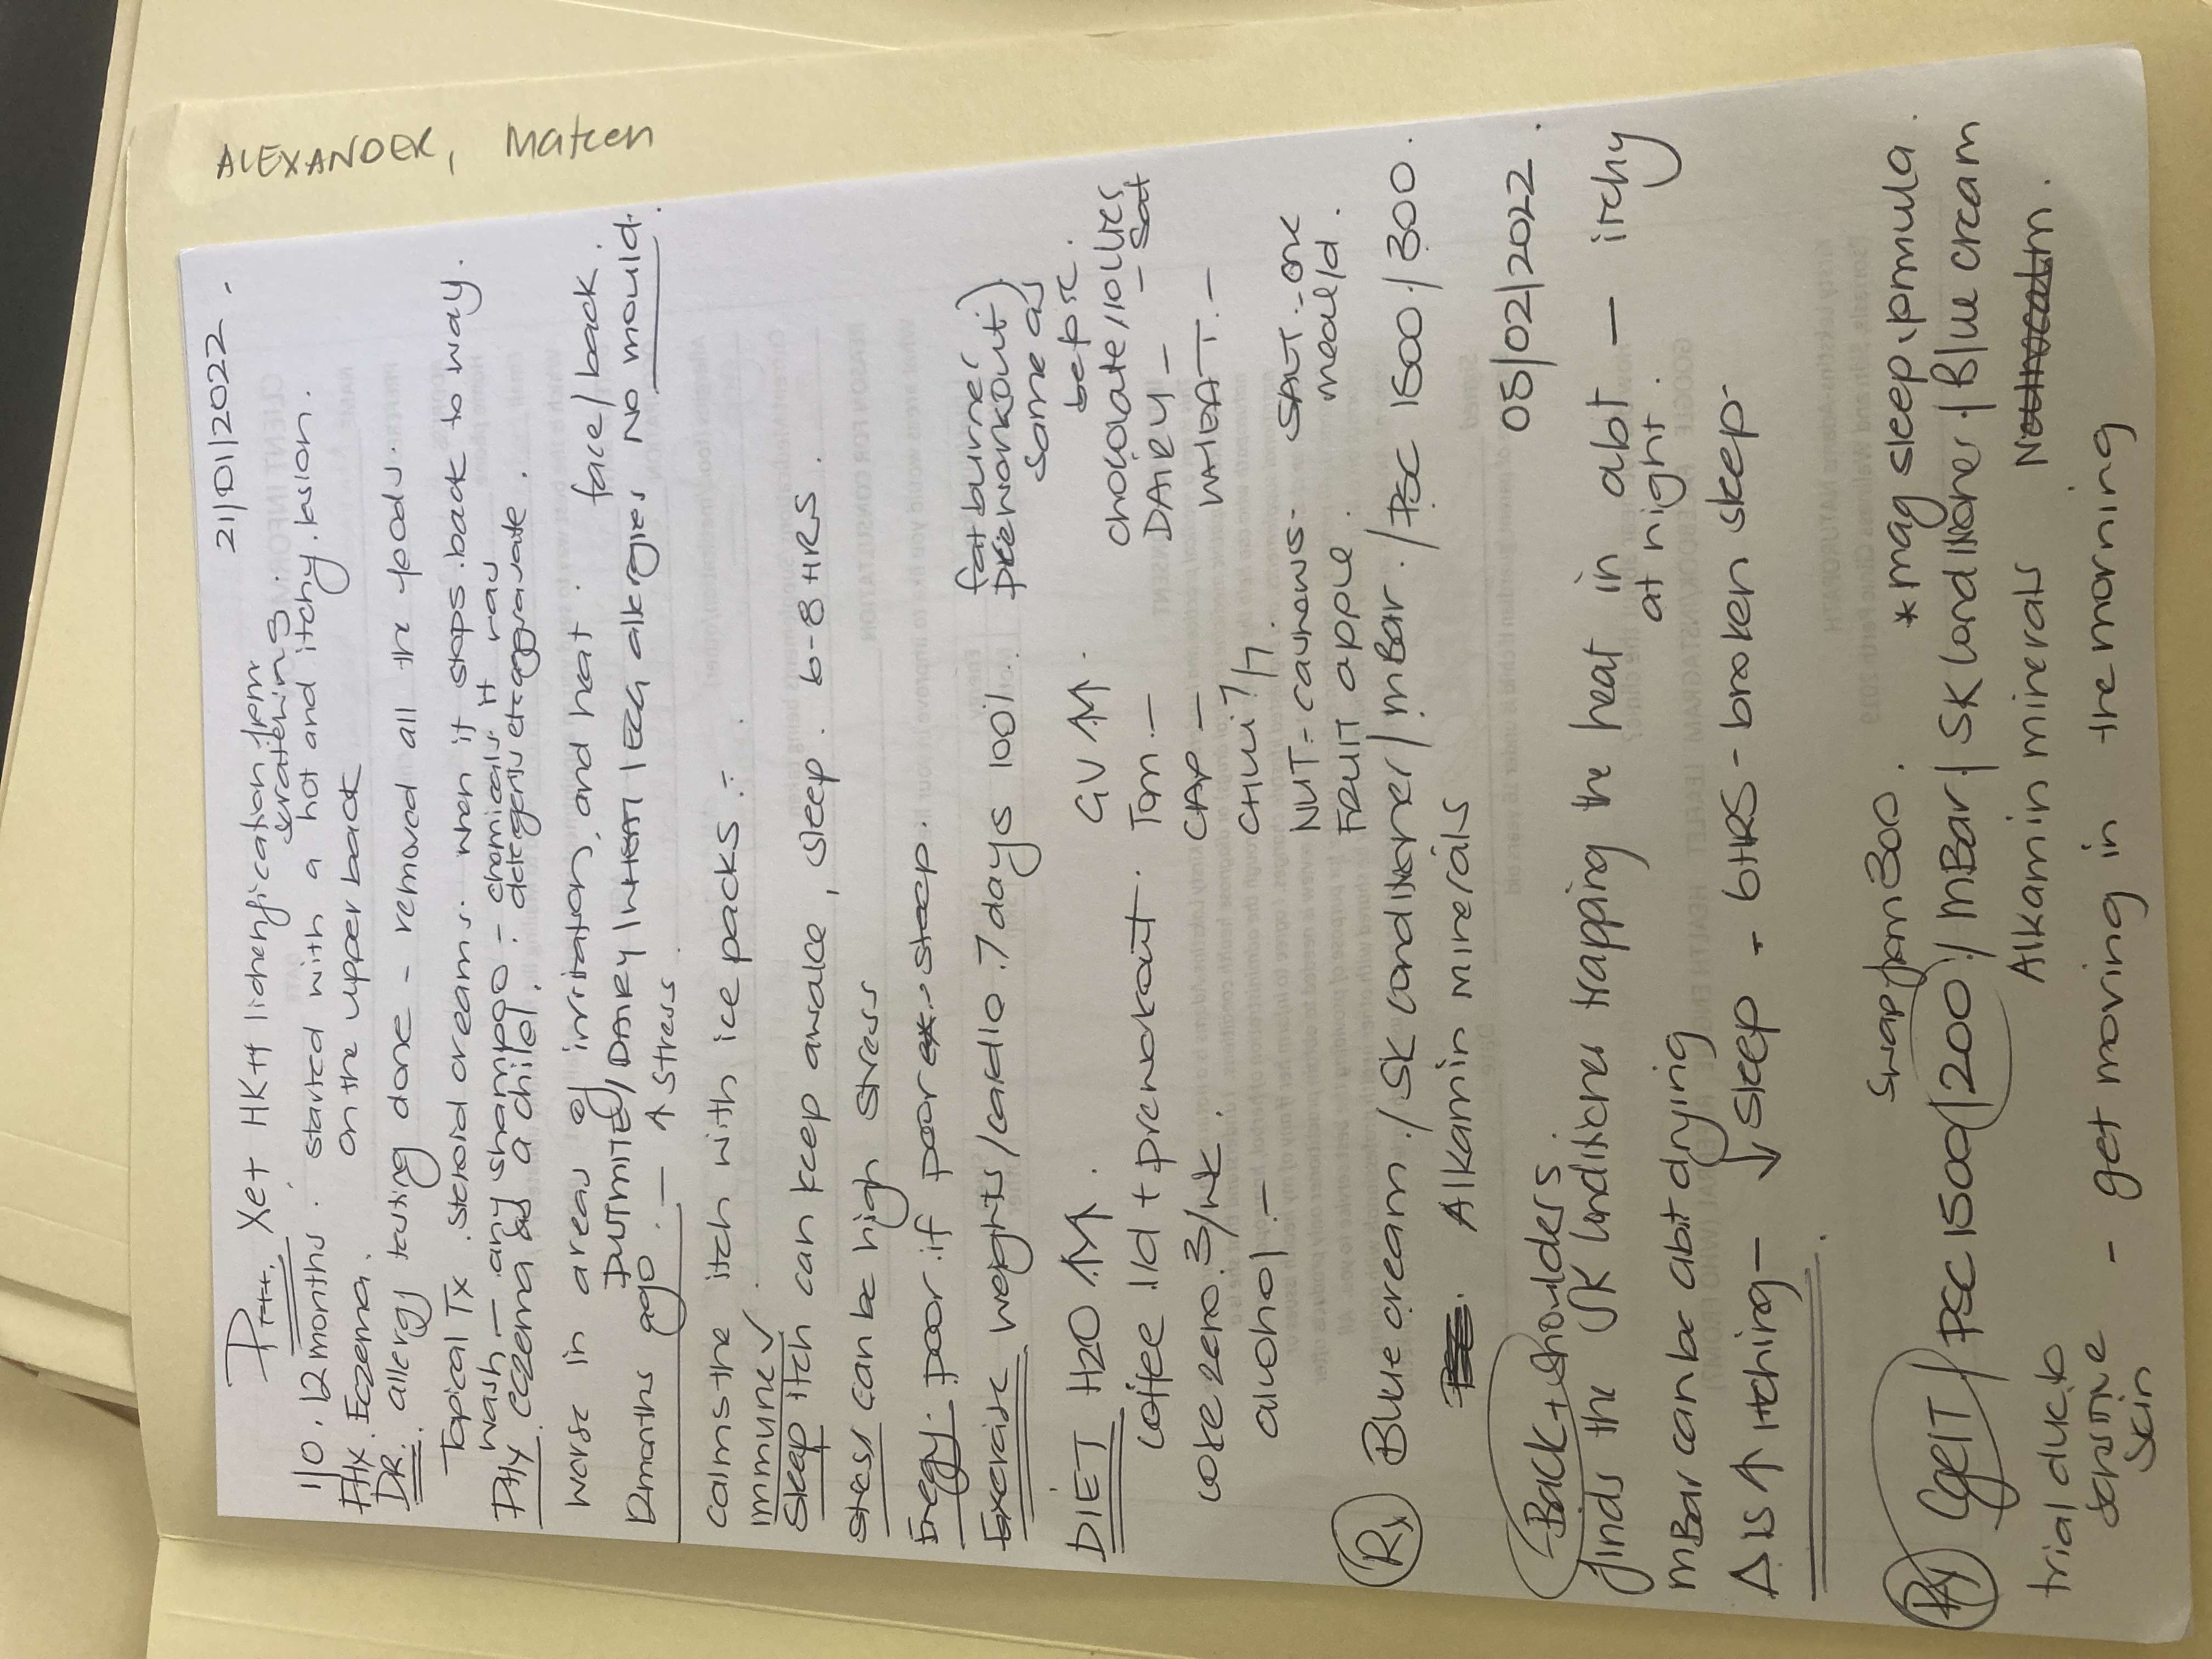 ALEXANDER, Mateen
21/01/2022.
Xet HK++ lichenification from scratching.
12 months. started with a hot and itchy lesion.
FHx. Eczema. on the upper back
DR. allergy testing done - removed all the foods.
Topical Tx. steroid creams. when it stops. back to way.
wash - any shampoo - chemicals it
PHx eczema as a child. detergents etc aggravate.
worse in areas of irritation, and heat. face/back.
DUTMITE/DAIRY/WHEAT/EGG allergies No mould.
months ago. - ↑ stress
calms the itch with ice packs -
immune ✓
sleep itch can keep awake, sleep. 6-8 HRS.
stress can be high stress
Energy. poor if poor sleep.
Exercise weights/cardio. 7 days 100%. (fat burner preworkout)
same as before.
DIET H2O ↑↑. GV ↑↑. chocolate/lollies
coffee 1/d + preworkout. Tom - DAIRY -
coke zero. 3/wk. CAP - WHEAT. -
alcohol - CHILLI ?/7.
NUT = cashews. SALT - on meal/d.
FRUIT apple.
Rx Blue cream. / SK conditioner / mBar. / PSC 1500 / 300.
Alkamin minerals
05/02/2022.
Back + shoulders
finds the SK conditioner trapping the heat in a bit - itchy at night.
mBar can be a bit drying
Δ is ↑ itching - ↓ sleep - 6HRS - broken sleep.
swap from 300. * mag sleep formula.
Rx CgeIT / PSC 1500 / 200 / mBar / SK conditioner / Blue cream
trial due to sensitive skin
Alkamin minerals
- get moving in the morning